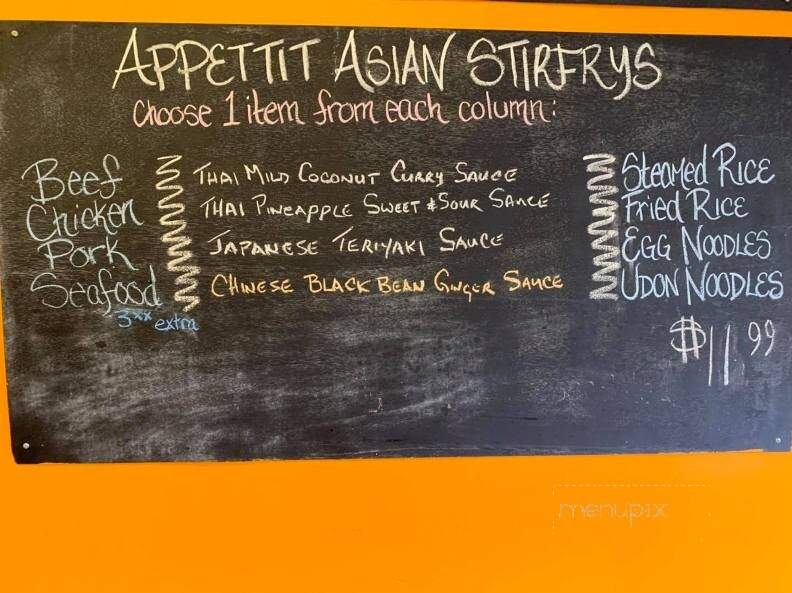 APPETTIT ASIAN STIRFRYS
Choose 1 item from each column:
Beef THAI MILD COCONUT CURRY SAUCE Steamed Rice
Chicken THAI PINEAPPLE SWEET & SOUR SAUCE Fried Rice
Pork JAPANESE TERIYAKI SAUCE EGG NOODLES
Seafood CHINESE BLACK BEAN GINGER SAUCE UDON NOODLES
3xx extra
$11.99
menupix